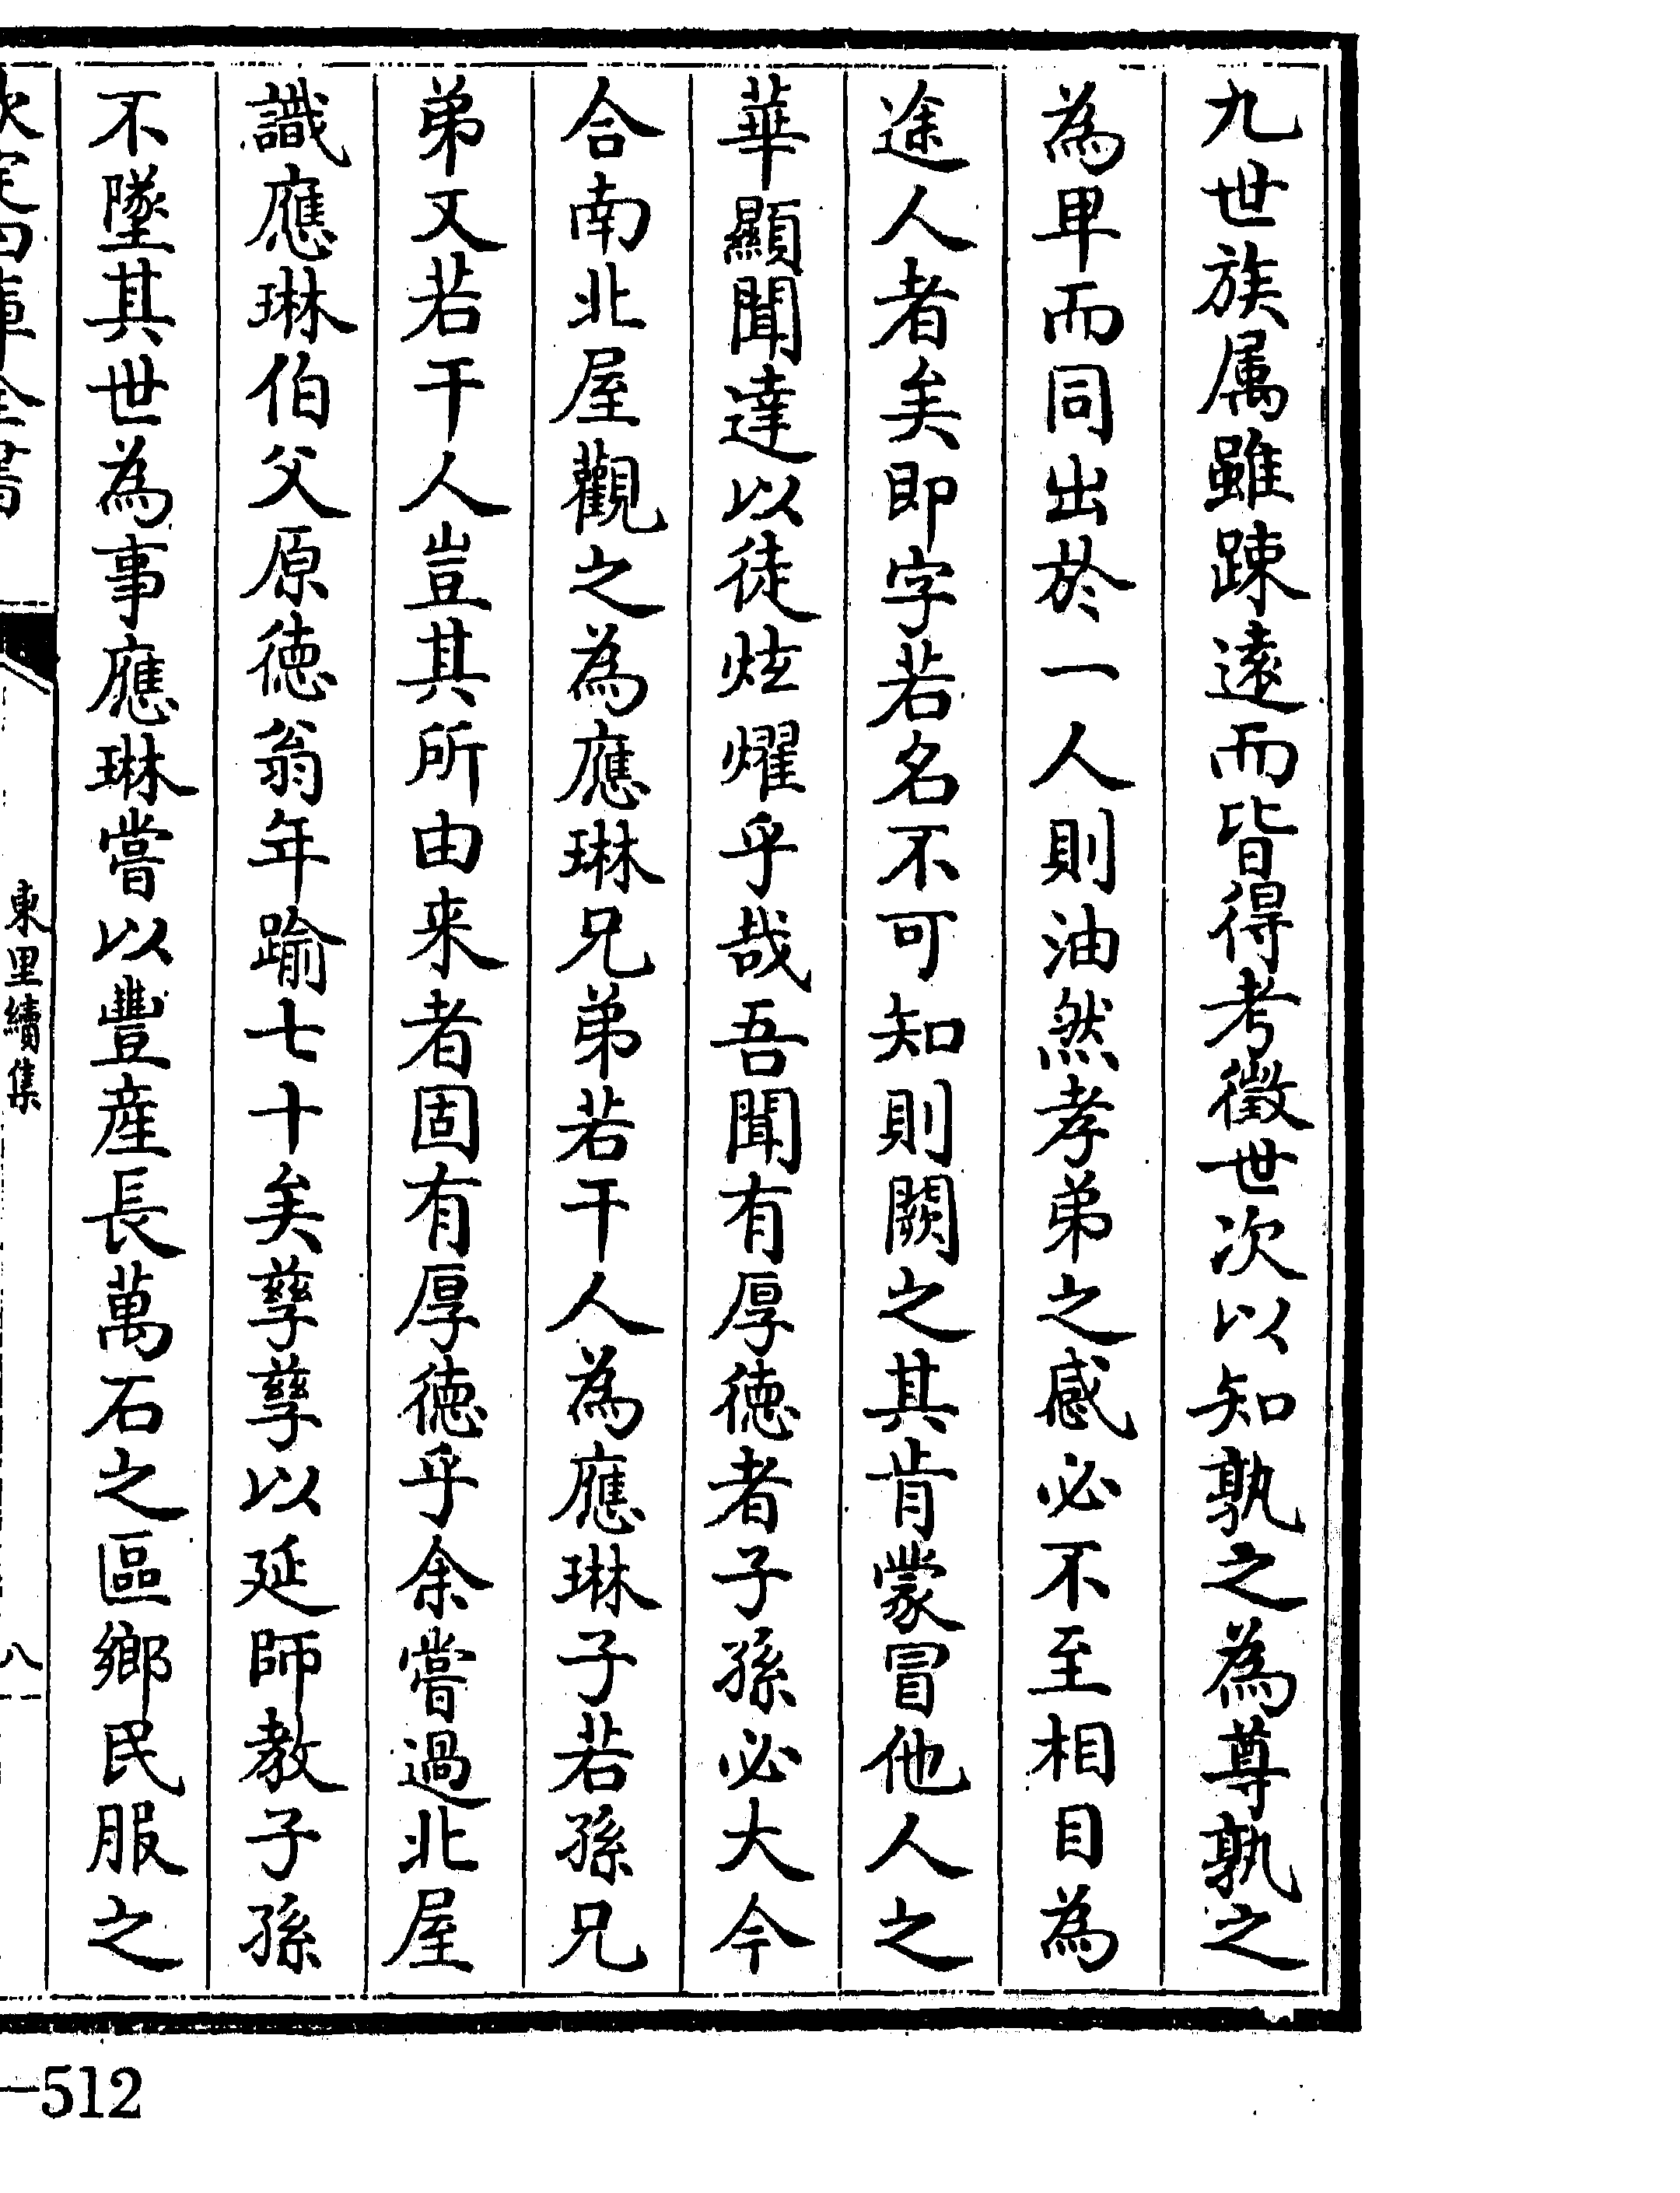 九世族属雖踈遠而皆得考徵世次以知孰之為尊孰之
為卑而同出於一人則油然孝弟之感必不至相目為
途人者矣即字若名不可知則闕之其肯蒙冒他人之
華顯聞達以徒炫燿乎哉吾聞有厚徳者子孫必大今
合南北屋觀之為應琳兄弟若干人為應琳子若孫兄
弟又若干人豈其所由来者固有厚徳乎余嘗過北屋
識應琳伯父原徳翁年踰七十矣孳孳以延師教子孫
不墜其世為事應琳嘗以豐産長萬石之區鄉民服之
欽定四庫全書
東里續集
八
512